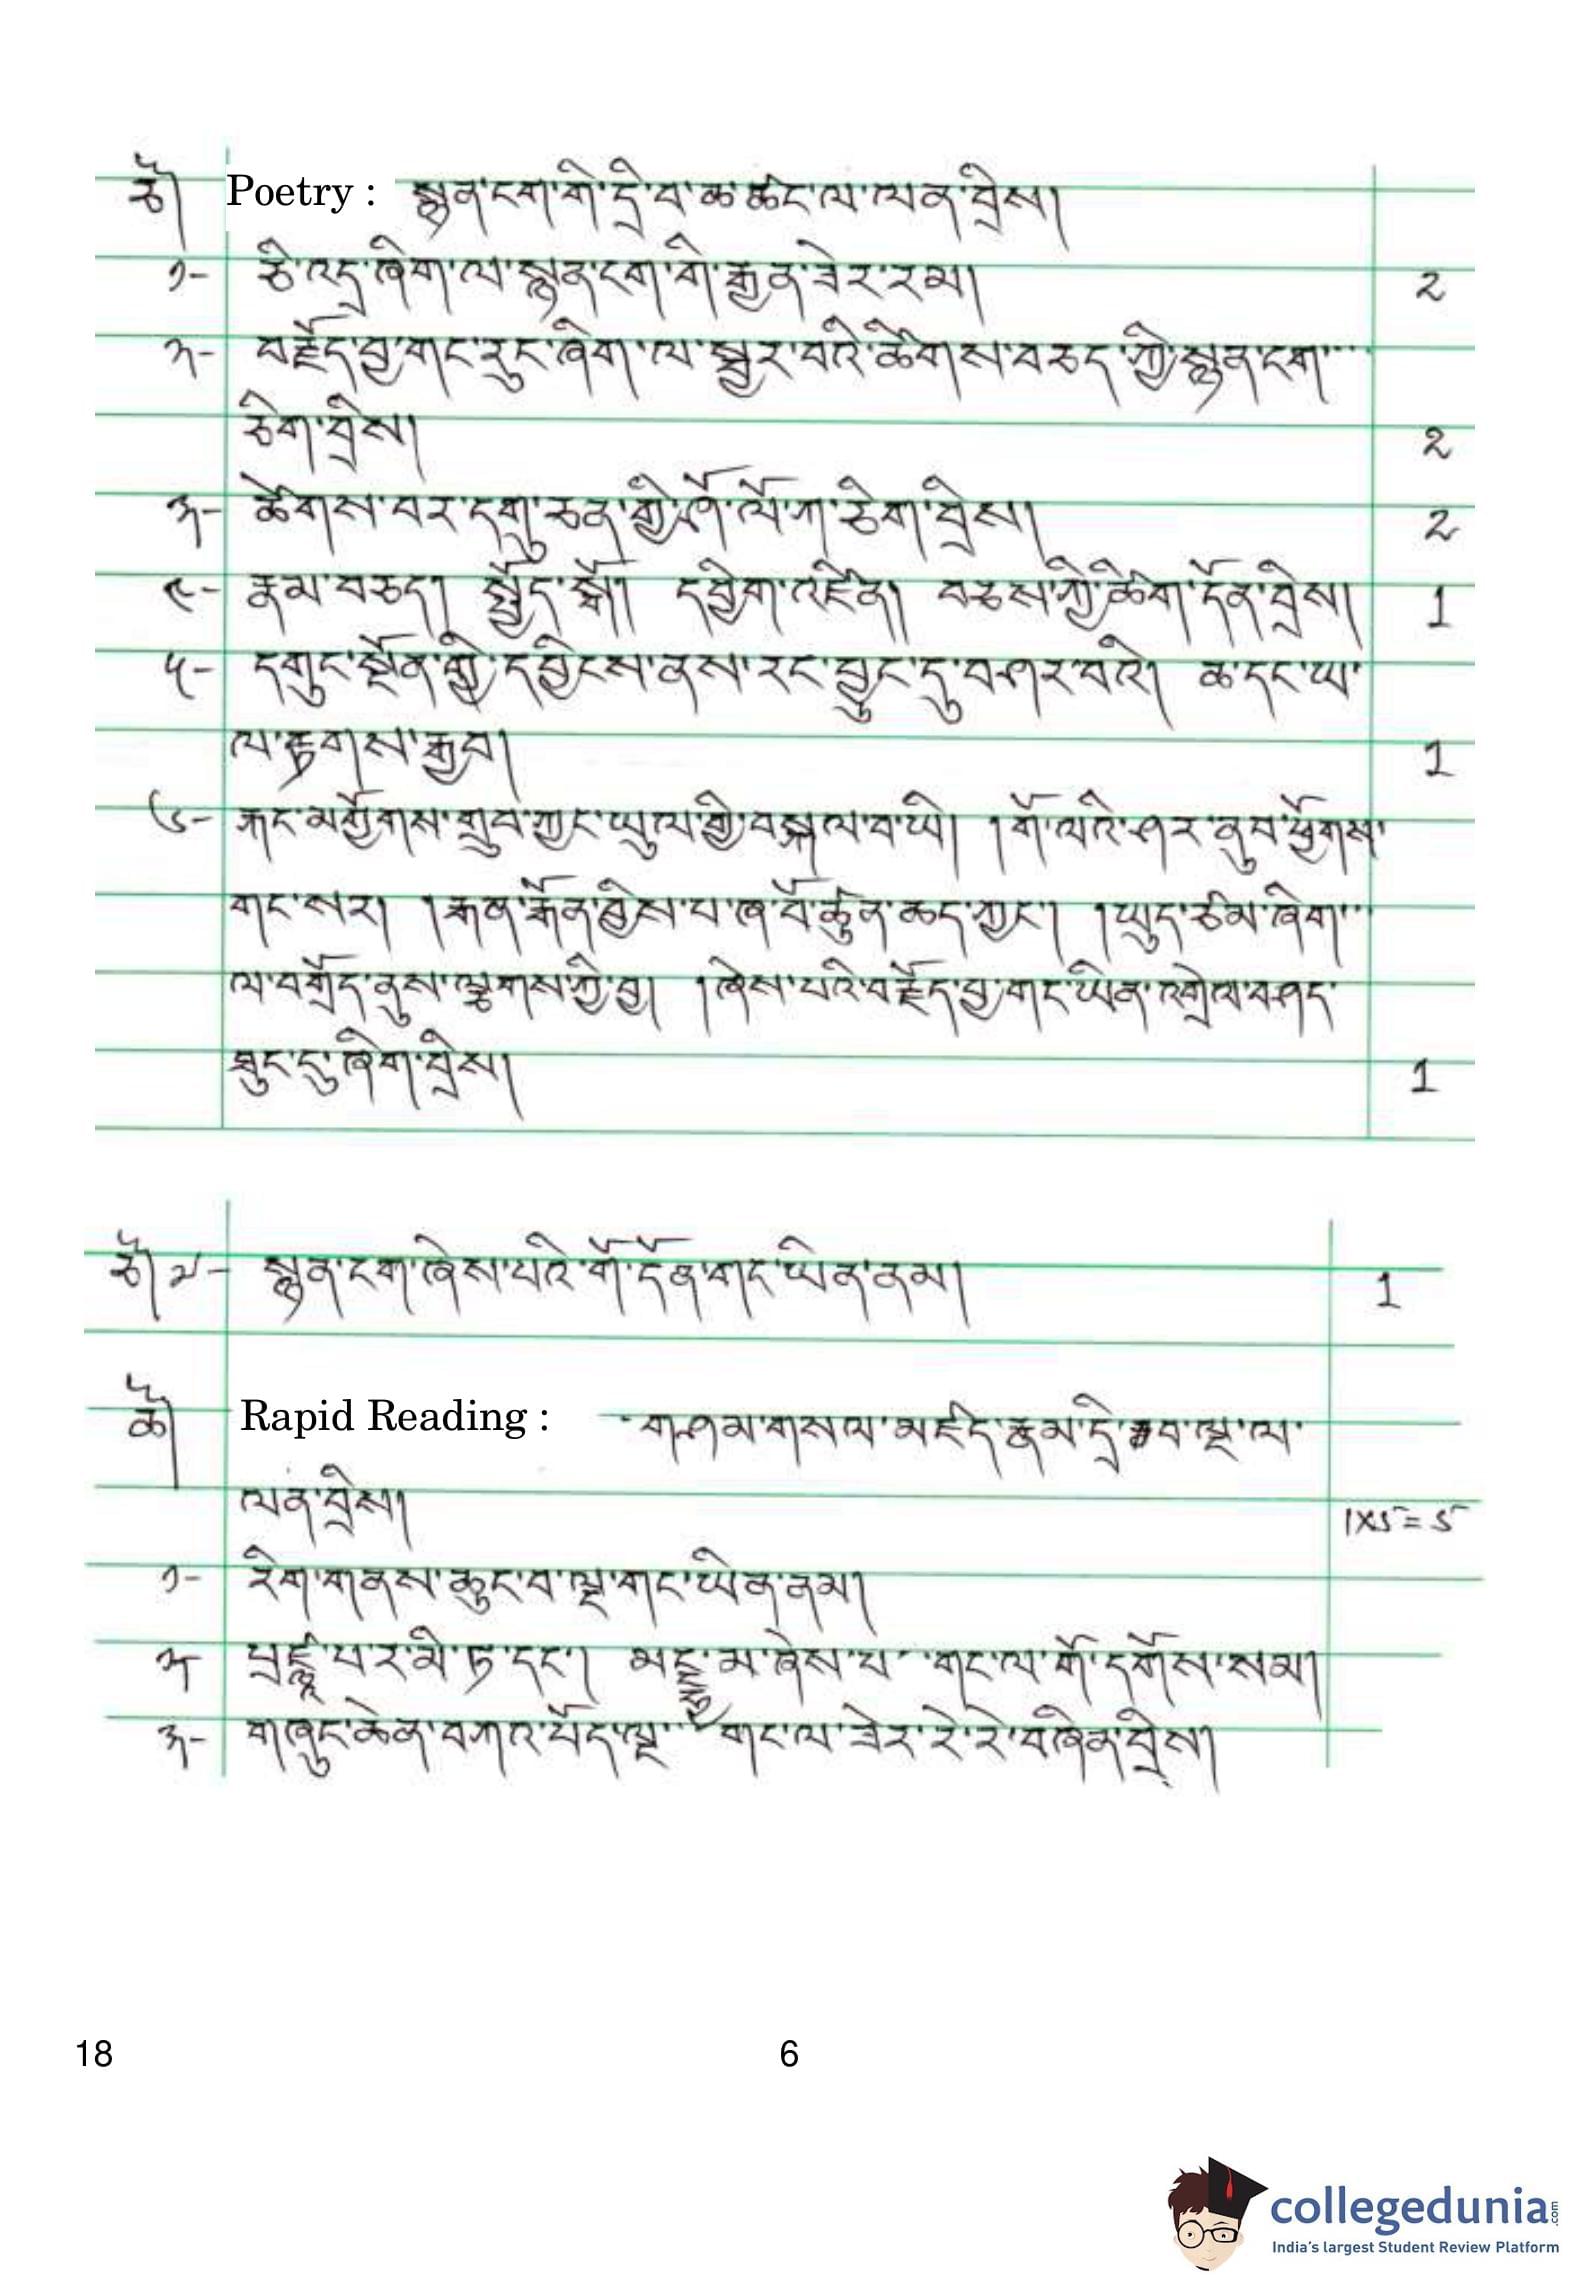 ཅོ། Poetry : སྙན་ངག་གི་དྲི་བ་ཆ་ཚང་ལ་ལན་བྲིས།
༡- ཅི་འདྲ་ཞིག་ལ་སྙན་ངག་གི་རྒྱན་ཟེར་རམ། 2
༢- བརྗོད་བྱ་གང་རུང་ཞིག་ལ་སྦྱར་བའི་ཚིགས་བཅད་ཀྱི་སྙན་ངག་
ཅིག་བྲིས། 2
༣- ཚིགས་བར་དགུ་ཅན་གྱི་ཤོ་ལོ་ཀ་ཅིག་བྲིས། 2
༤- རྣམ་བཅད། སྤྱོད་སྒོ། དབྱིག་འཛིན། བཅས་ཀྱི་ཚིག་དོན་བྲིས། 1
༥- དགུང་སྔོན་གྱི་དབྱིངས་ནས་རང་བྱུང་དུ་བཤར་བའི། ཆ་དང་ཡ་
ལ་རྟགས་རྒྱབ། 1
༦- རྐང་མགྱོགས་གྲུབ་ཀྱང་ཡུལ་གྱི་བསྐལ་བ་ཡི། །གོ་ལའི་ཤར་ནུབ་ཕྱོགས་
གང་སར། །རྒན་རྒོན་བྱིས་པ་ཞ་བོ་ཚུན་ཆད་ཀྱང་། །ཡུད་ཙམ་ཞིག་
ལ་བགྲོད་ནུས་ལྕགས་ཀྱི་བྱ། །ཞེས་པའི་བརྗོད་བྱ་གང་ཡིན་འགྲེལ་བཤད་
ཐུང་དུ་ཞིག་བྲིས། 1
ཅོ། ༧- སྙན་ངག་ཞེས་པའི་གོ་དོན་གང་ཡིན་ནམ། 1
ཆོ། Rapid Reading : གཤམ་གསལ་མཛོད་རྣམ་དྲི་བ་ལྔ་ལ་
ལན་བྲིས། 1X5=5
༡- རིག་གནས་ཆུང་བ་ལྔ་གང་ཡིན་ནམ།
༢- པྲཛྙཱ་པ་ར་མི་ཏ་དང་། མཉྫུ་མ་ཞེས་པ་ གང་ལ་གོ་དགོས་སམ།
༣- གཞུང་ཆེན་བཀའ་པོད་ལྔ་ གང་ལ་ཟེར་རེ་རེ་བཞིན་བྲིས།
18 6
collegedunia.com
India's largest Student Review Platform